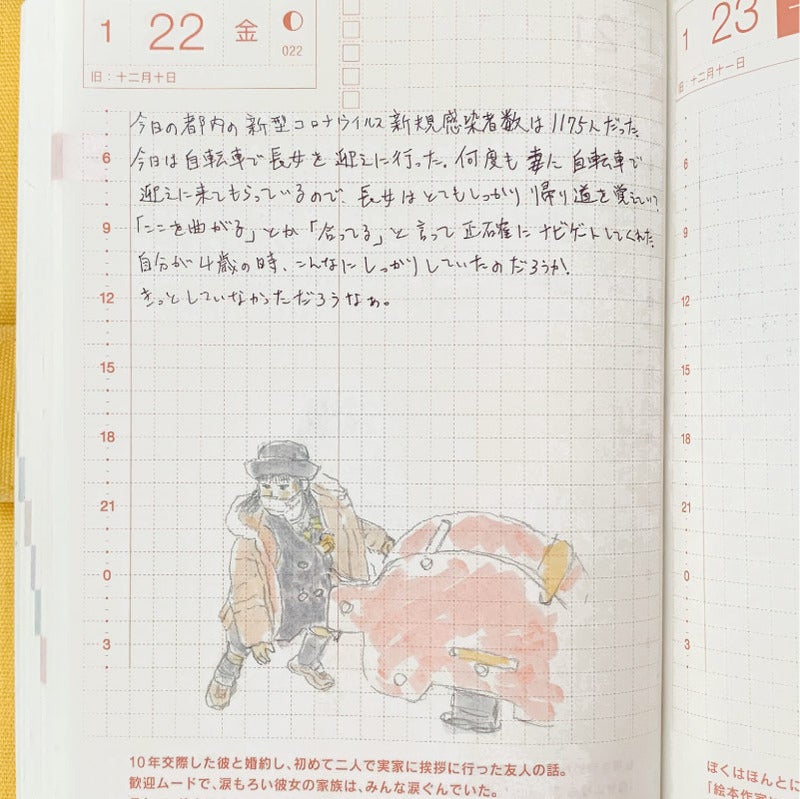 1 22 金
022
旧：十二月十日
今日の都内の新型コロナウイルス新規感染者数は1175人だった。
今日は自転車で長女を迎えに行った。何度も妻に自転車で
迎えに来てもらっているので、長女はとてもしっかり帰り道を覚えていて
「ここを曲がる」とか「合ってる」と言って正確にナビゲートしてくれた。
自分が4歳の時、こんなにしっかりしていたのだろうか。
きっとしていなかっただろうなぁ。
6
9
12
15
18
21
0
3
10年交際した彼と婚約し、初めて二人で実家に挨拶に行った友人の話。
歓迎ムードで、涙もろい彼女の家族は、みんな涙ぐんでいた。
1 23
旧：十二月十一日
6
9
12
15
18
21
0
3
ぼくはほんとに
「絵本作家